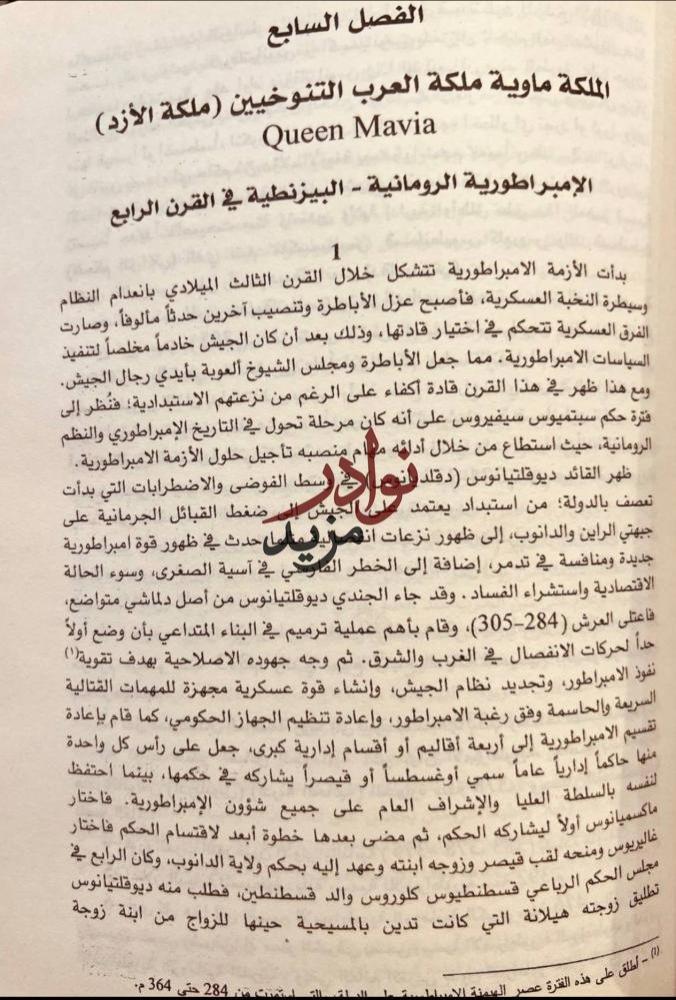 الفصل السابع
الملكة ماوية ملكة العرب التنوخيين (ملكة الأزد)
Queen Mavia
الإمبراطورية الرومانية - البيزنطية في القرن الرابع
1
بدأت الأزمة الامبراطورية تتشكل خلال القرن الثالث الميلادي بانعدام النظام
وسيطرة النخبة العسكرية، فأصبح عزل الأباطرة وتنصيب آخرين حدثاً مألوفاً، وصارت
الفرق العسكرية تتحكم في اختيار قادتها، وذلك بعد أن كان الجيش خادماً مخلصاً لتنفيذ
السياسات الامبراطورية. مما جعل الأباطرة ومجلس الشيوخ ألعوبة بأيدي رجال الجيش.
ومع هذا ظهر في هذا القرن قادة أكفاء على الرغم من نزعتهم الاستبدادية؛ فنُظر إلى
فترة حكم سبتميوس سيفيروس على أنه كان مرحلة تحول في التاريخ الإمبراطوري والنظم
الرومانية، حيث استطاع من خلال أدائه مهام منصبه تأجيل حلول الأزمة الامبراطورية.
ظهر القائد ديوقلتيانوس (دقلديانوس) في وسط الفوضى والاضطرابات التي بدأت
تعصف بالدولة؛ من استبداد يعتمد على الجيش إلى ضغط القبائل الجرمانية على
جبهتي الراين والدانوب، إلى ظهور نزعات حدث في ظهور قوة امبراطورية
جديدة ومنافسة في تدمر، إضافة إلى الخطر الفارسي في آسية الصغرى، وسوء الحالة
الاقتصادية واستشراء الفساد. وقد جاء الجندي ديوقلتيانوس من أصل دلماشي متواضع،
فاعتلى العرش (284-305)، وقام بأهم عملية ترميم في البناء المتداعي بأن وضع أولاً
حداً لحركات الانفصال في الغرب والشرق. ثم وجه جهوده الاصلاحية بهدف تقوية(١)
نفوذ الامبراطور، وتجديد نظام الجيش، وإنشاء قوة عسكرية مجهزة للمهمات القتالية
السريعة والحاسمة وفق رغبة الامبراطور، وإعادة تنظيم الجهاز الحكومي، كما قام بإعادة
تقسيم الامبراطورية إلى أربعة أقاليم أو أقسام إدارية كبرى، جعل على رأس كل واحدة
منها حاكماً إدارياً عاماً سمي أوغسطساً أو قيصراً يشاركه في حكمها، بينما احتفظ
لنفسه بالسلطة العليا والإشراف العام على جميع شؤون الإمبراطورية. فاختار
ماكسميانوس أولاً ليشاركه الحكم، ثم مضى بعدها خطوة أبعد لاقتسام الحكم فاختار
غاليريوس ومنحه لقب قيصر وزوجه ابنته وعهد إليه بحكم ولاية الدانوب، وكان الرابع في
مجلس الحكم الرباعي قسطنطيوس كلوروس والد قسطنطين، فطلب منه ديوقلتيانوس
تطليق زوجته هيلانة التي كانت تدين بالمسيحية حينها للزواج من ابنة زوجة
(١) - أطلق على هذه الفترة عصر الهيمنة الامبراطورية على التي استمرت من 284 حتى 364 م.
نوادر
مزيد